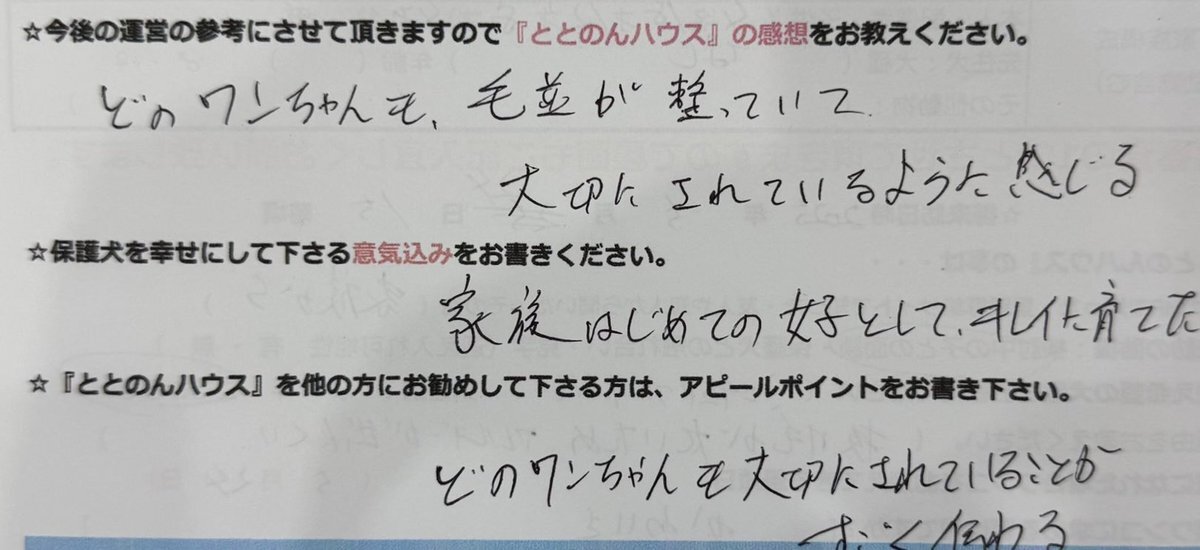 ☆今後の運営の参考にさせて頂きますので『ととのんハウス』の感想をお教えください。
どのワンちゃんも、毛並が整っていて
大切にされているように感じる
☆保護犬を幸せにして下さる意気込みをお書きください。
家族はじめての女子として、キレイに育てた
☆『ととのんハウス』を他の方にお勧めして下さる方は、アピールポイントをお書き下さい。
どのワンちゃんも大切にされていることが
すごく伝わる